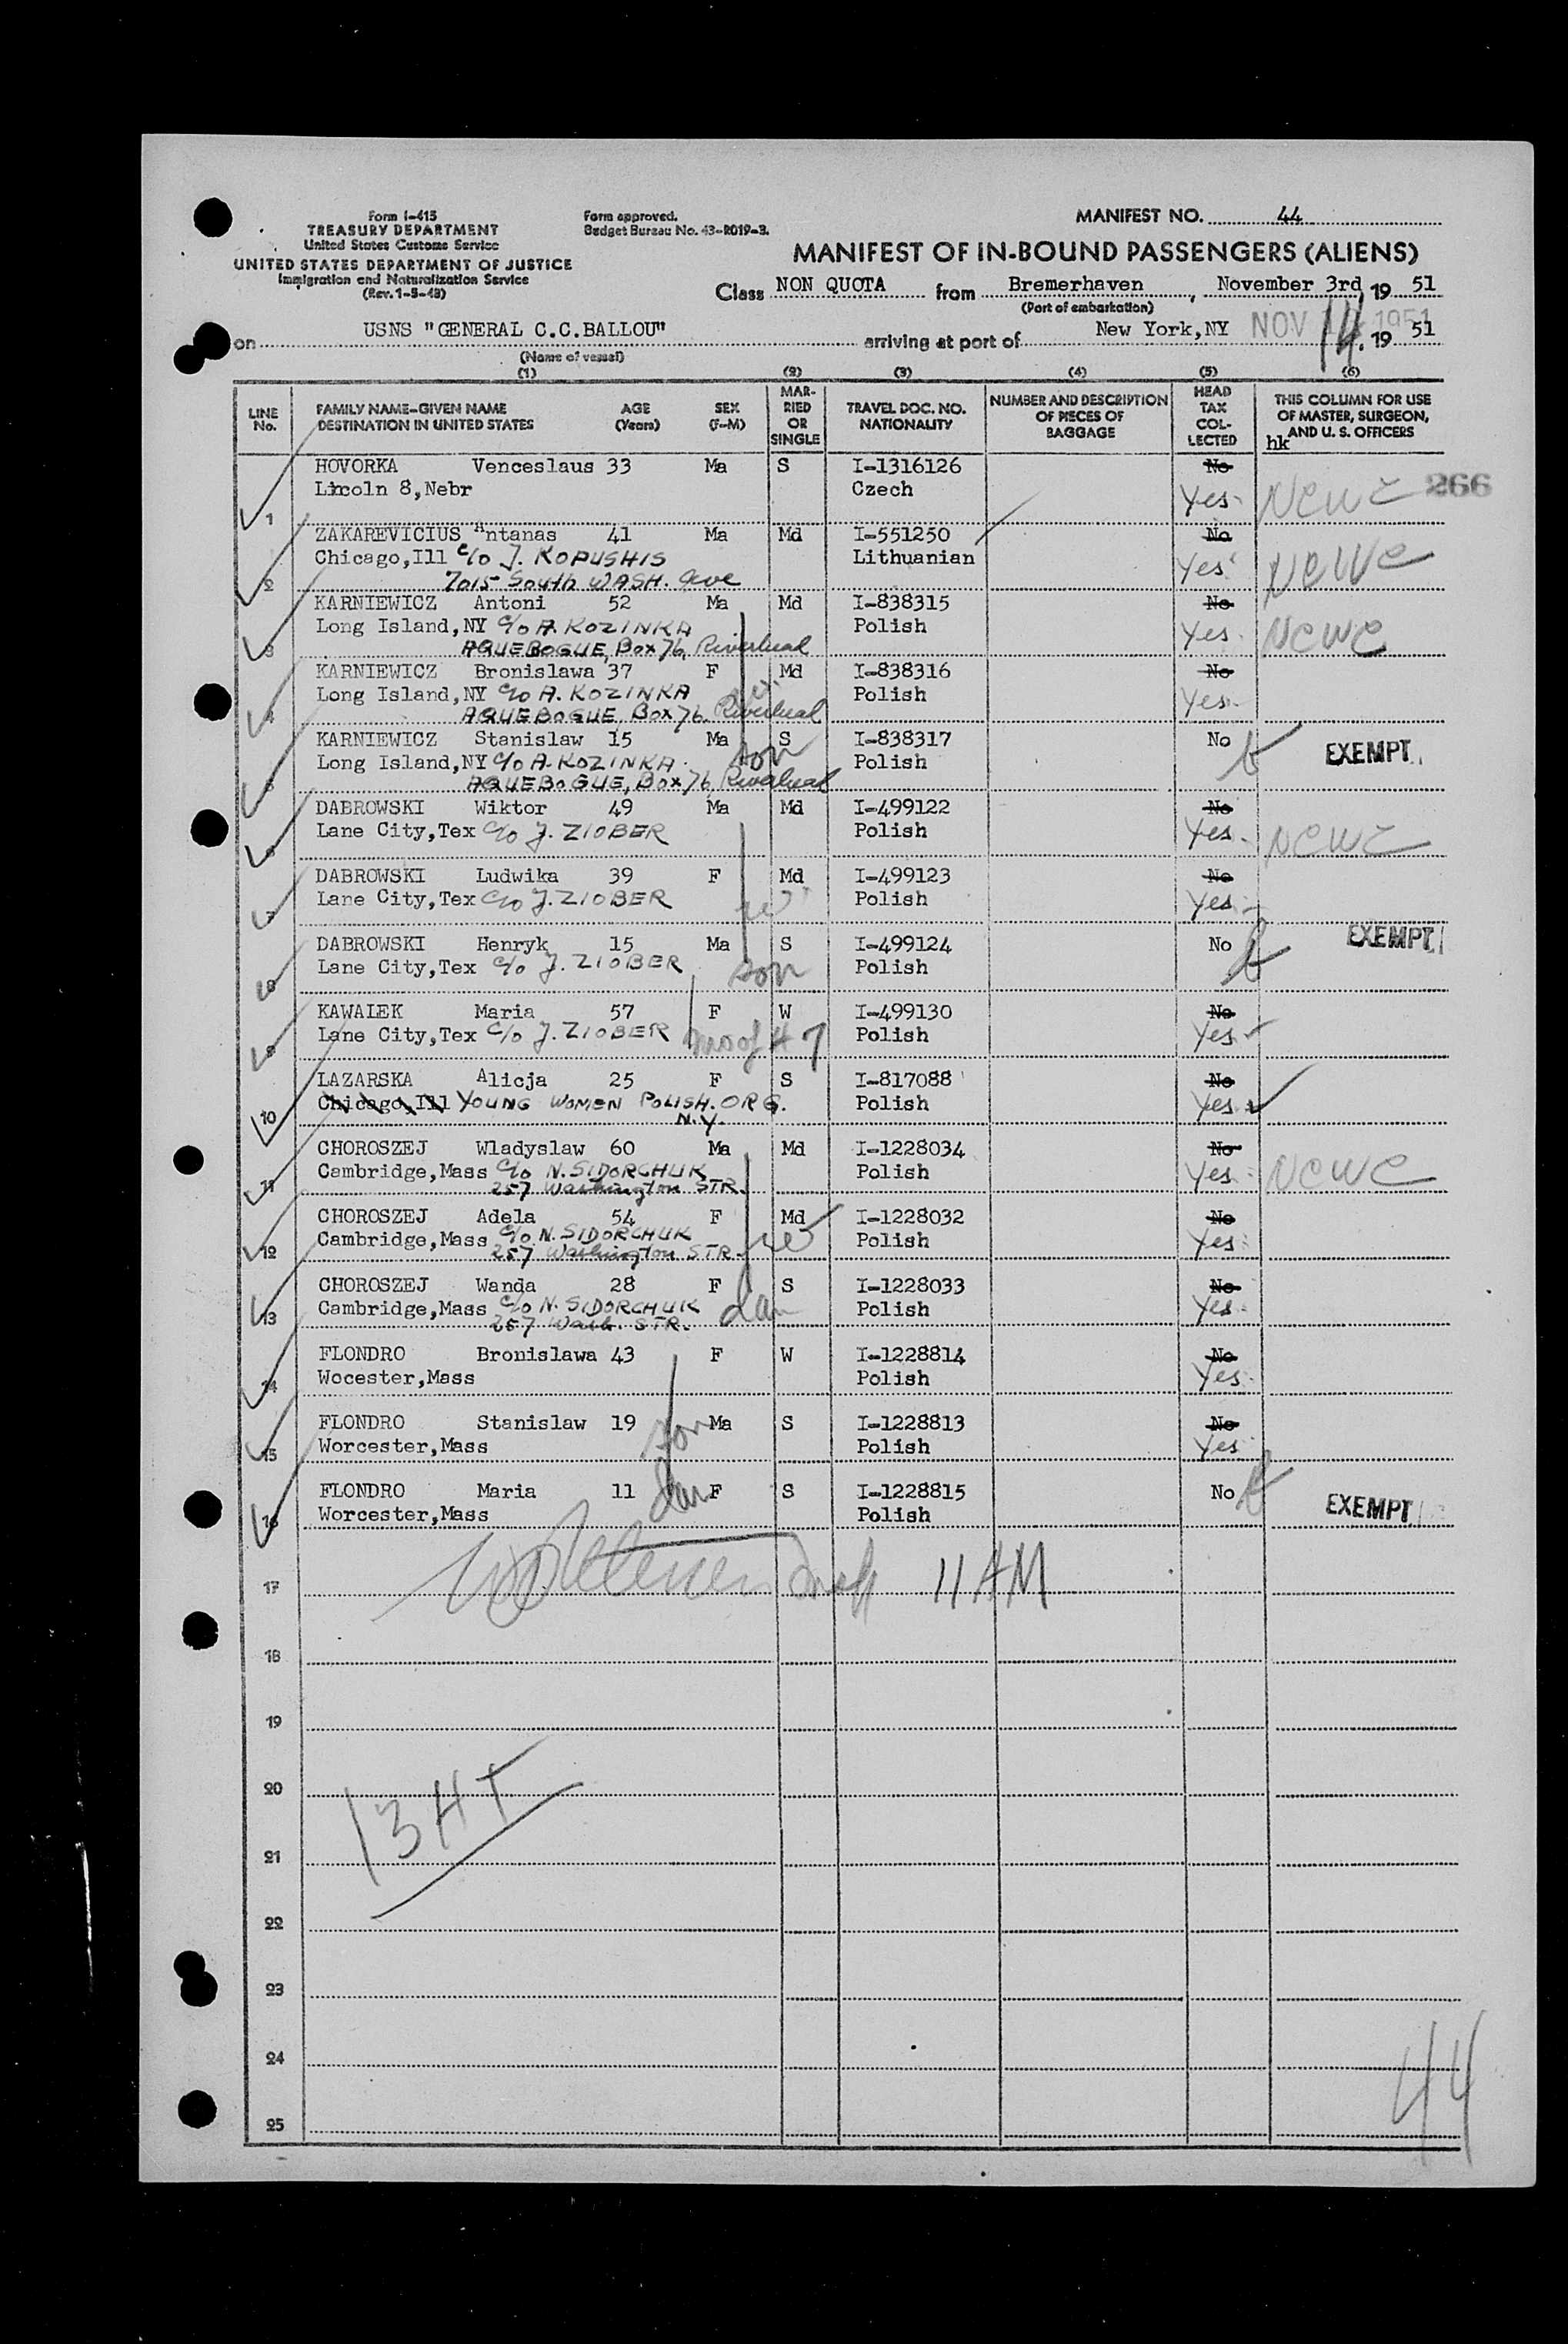 Form I-415
TREASURY DEPARTMENT
United States Customs Service
UNITED STATES DEPARTMENT OF JUSTICE
Immigration and Naturalization Service
(Rev. 1-5-48)
Form approved.
Budget Bureau No. 43-R019-3.
MANIFEST NO. 44
MANIFEST OF IN-BOUND PASSENGERS (ALIENS)
Class NON QUOTA from Bremerhaven, November 3rd, 19 51
(Port of embarkation)
on USNS "GENERAL C.C.BALLOU" arriving at port of New York,NY NOV 14. 1951 19 51
(Name of vessel)
(1) (2) (3) (4) (5) (6)
LINE No. FAMILY NAME-GIVEN NAME DESTINATION IN UNITED STATES AGE (Years) SEX (F-M) MARRIED OR SINGLE TRAVEL DOC. NO. NATIONALITY NUMBER AND DESCRIPTION OF PIECES OF BAGGAGE HEAD TAX COLLECTED THIS COLUMN FOR USE OF MASTER, SURGEON, AND U. S. OFFICERS
hk
HOVORKA Venceslaus 33 Ma S I-1316126 No
Lincoln 8,Nebr Czech Yes NCWC 266
1
ZAKAREVICIUS Antanas 41 Ma Md I-551250 No
Chicago,Ill c/o J. KOPUSHIS Lithuanian Yes NCWC
2 7015 South WASH. Ave
KARNIEWICZ Antoni 52 Ma Md I-838315 No
Long Island,NY c/o A. KOZINKA Polish Yes NCWC
3 AQUEBOGUE, Box 76, Riverhead
KARNIEWICZ Bronislawa 37 F Md I-838316 No
Long Island,NY c/o A. KOZINKA w. Polish Yes
4 AQUEBOGUE, Box 76, Riverhead
KARNIEWICZ Stanislaw 15 Ma S I-838317 No EXEMPT
Long Island,NY c/o A. KOZINKA son Polish
5 AQUEBOGUE, Box 76, Riverhead
DABROWSKI Wiktor 49 Ma Md I-499122 No
Lane City,Tex c/o J. ZIOBER Polish Yes NCWC
6
DABROWSKI Ludwika 39 F Md I-499123 No
Lane City,Tex c/o J. ZIOBER w Polish Yes
7
DABROWSKI Henryk 15 Ma S I-499124 No EXEMPT
Lane City,Tex c/o J. ZIOBER son Polish
8
KAWALEK Maria 57 F W I-499130 No
Lane City,Tex c/o J. ZIOBER of # 7 Polish Yes
9
LAZARSKA Alicja 25 F S I-817088 No
Chicago,Ill YOUNG WOMEN POLISH. ORG. Polish Yes
10 N.Y.
CHOROSZEJ Wladyslaw 60 Ma Md I-1228034 No
Cambridge,Mass c/o N. SIDORCHUK Polish Yes NCWC
11 257 Washington STR.
CHOROSZEJ Adela 54 F Md I-1228032 No
Cambridge,Mass c/o N. SIDORCHUK w Polish Yes
12 257 Washington STR.
CHOROSZEJ Wanda 28 F S I-1228033 No
Cambridge,Mass c/o N. SIDORCHUK dau Polish Yes
13 257 Wash. STR.
FLONDRO Bronislawa 43 F W I-1228814 No
Wocester,Mass Polish Yes
14
FLONDRO Stanislaw 19 son Ma S I-1228813 No
Worcester,Mass Polish Yes
15
FLONDRO Maria 11 dau F S I-1228815 No
Worcester,Mass Polish EXEMPT
16
17 11 AM
18
19
20
13 HT
21
22
23
24
44
25